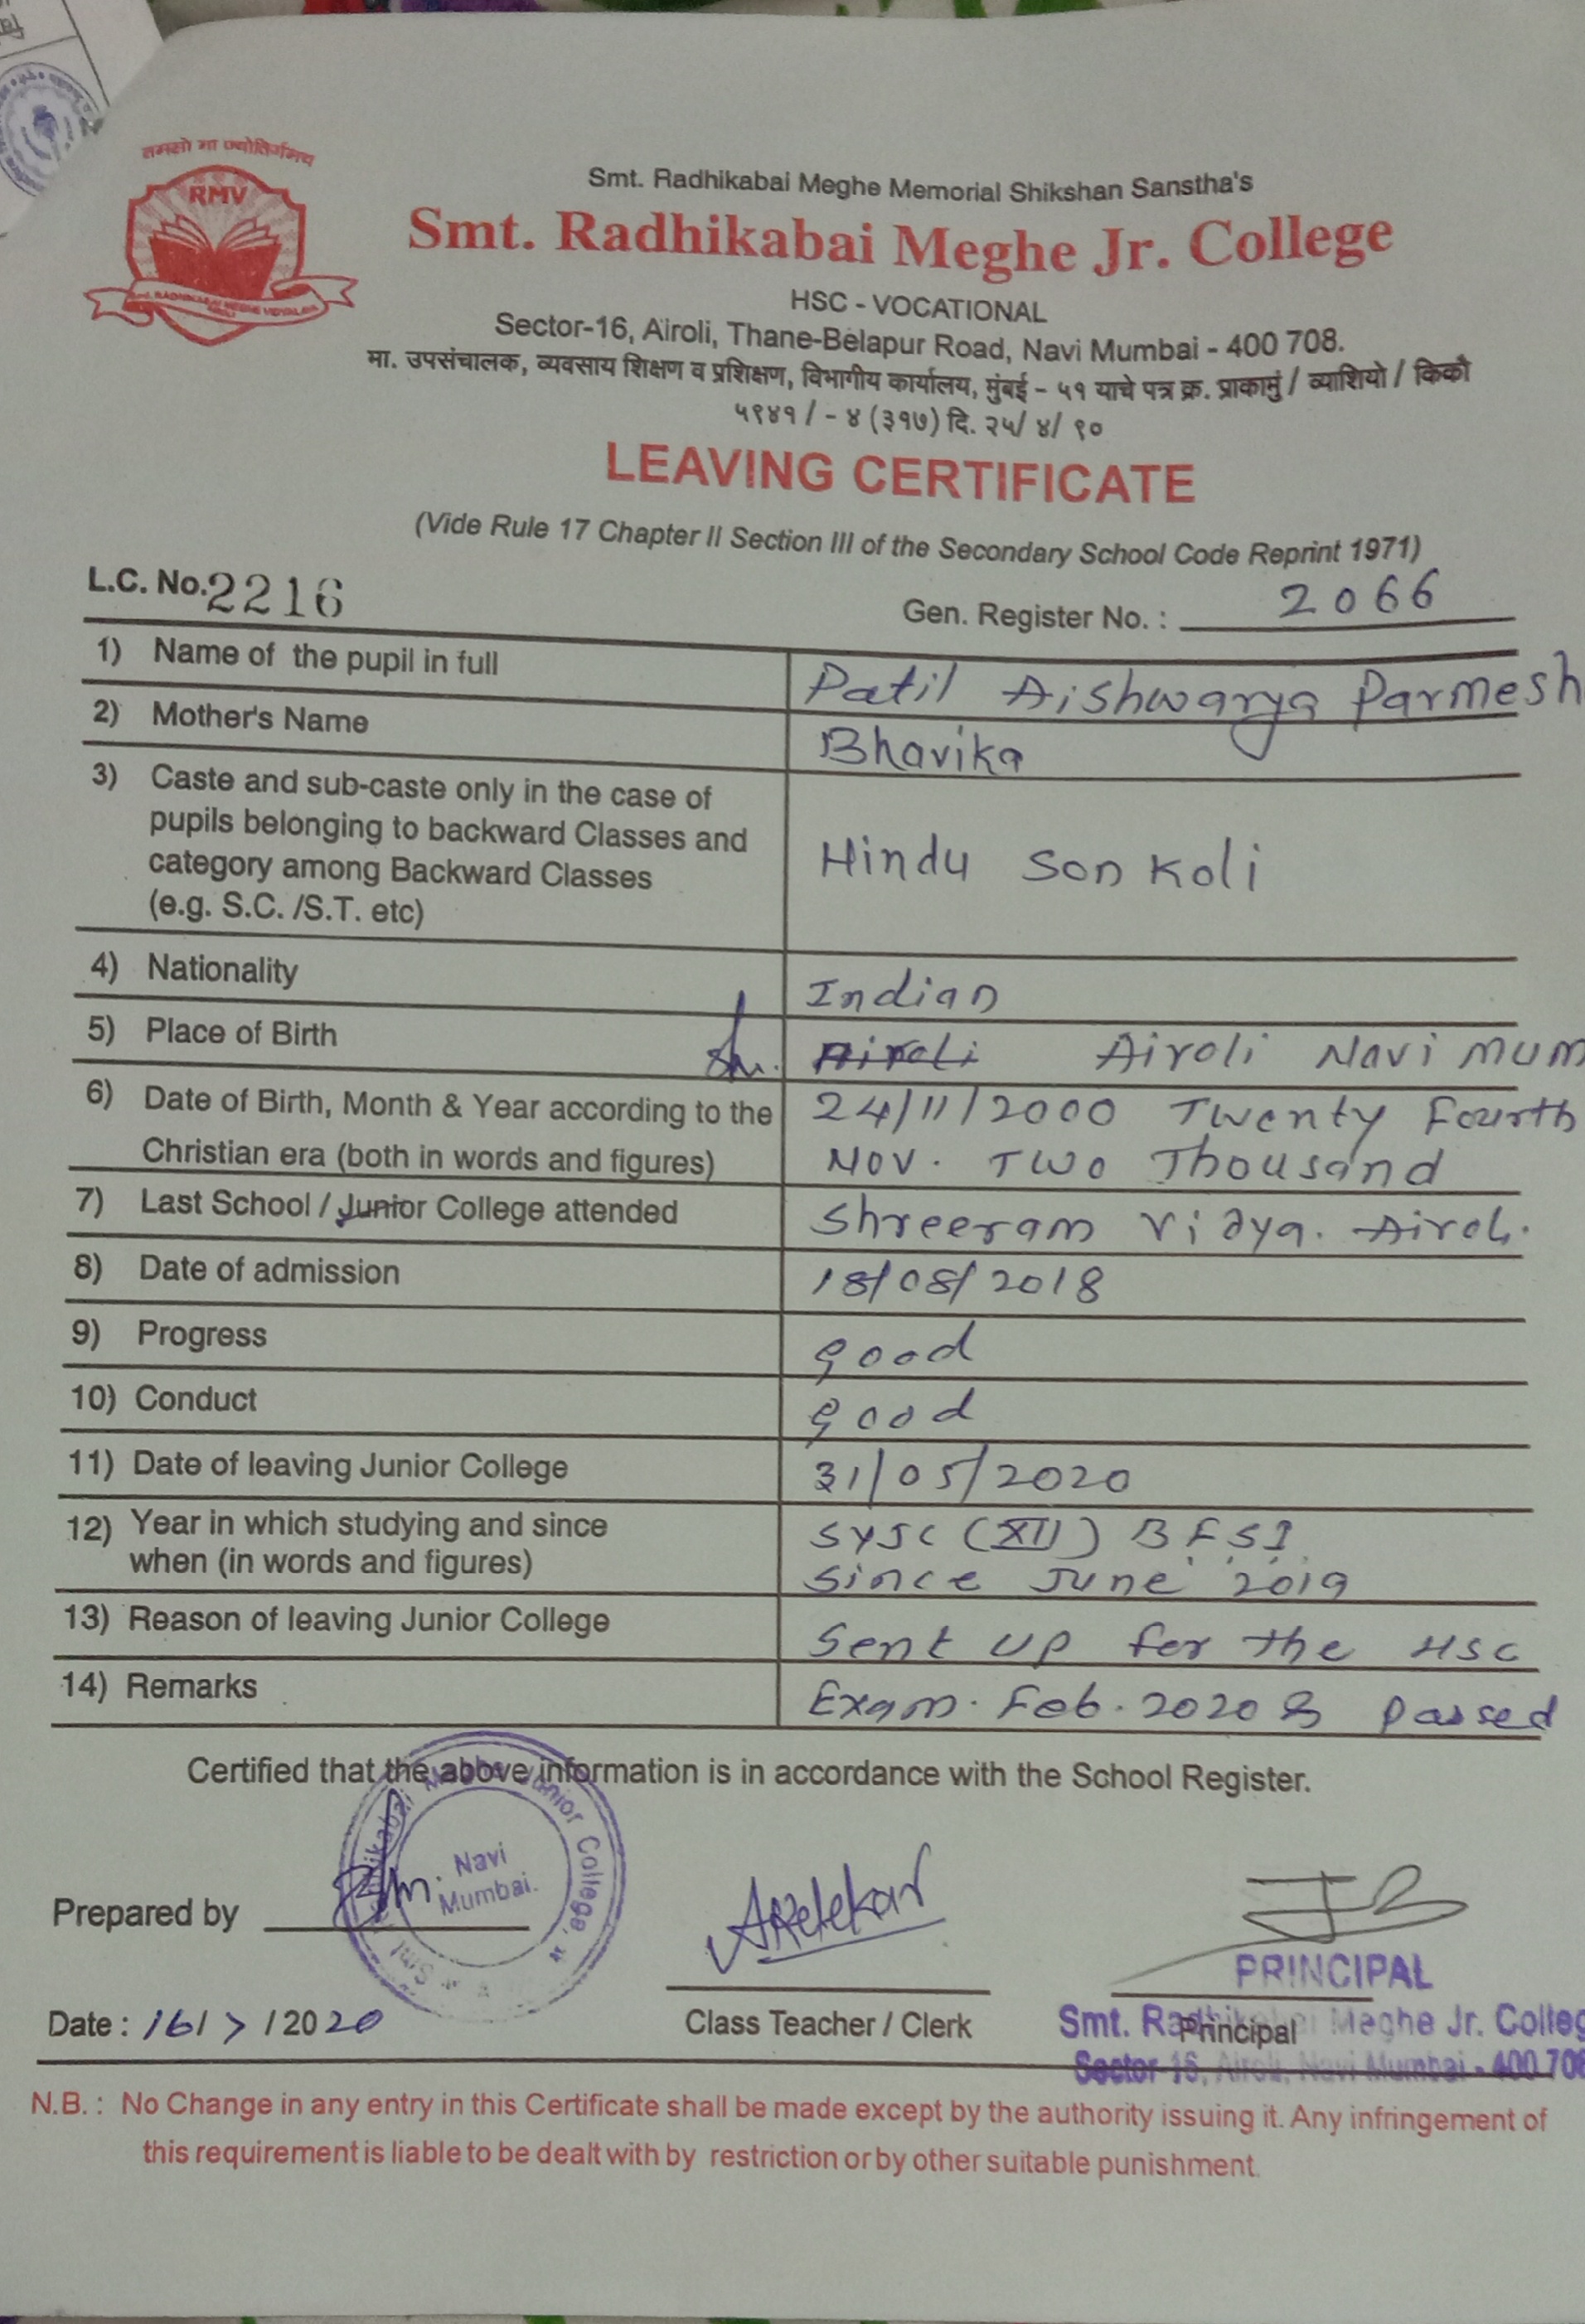 तमसो मा ज्योतिर्गमय
RMV
Smt. RADHIKABAI MEGHE VIDYALAYA
AIROLI
Smt. Radhikabai Meghe Memorial Shikshan Sanstha's
Smt. Radhikabai Meghe Jr. College
HSC - VOCATIONAL
Sector-16, Airoli, Thane-Belapur Road, Navi Mumbai - 400 708.
मा. उपसंचालक, व्यवसाय शिक्षण व प्रशिक्षण, विभागीय कार्यालय, मुंबई - ५१ याचे पत्र क्र. प्राकामुं / व्याशियो / किकौ
५९४१ / - ४ (३१७) दि. २५/ ४/ ९०
LEAVING CERTIFICATE
(Vide Rule 17 Chapter II Section III of the Secondary School Code Reprint 1971)
L.C. No. 2216 Gen. Register No. : 2066
1) Name of the pupil in full Patil Aishwarya Parmesh
2) Mother's Name Bhavika
3) Caste and sub-caste only in the case of
pupils belonging to backward Classes and
category among Backward Classes
(e.g. S.C. /S.T. etc) Hindu Son Koli
4) Nationality Indian
5) Place of Birth Airoli Airoli Navi Mum
6) Date of Birth, Month & Year according to the 24/11/2000 Twenty Fourth
Christian era (both in words and figures) Nov. Two Thousand
7) Last School / Junior College attended Shreeram Vidya. Airoli.
8) Date of admission 18/08/2018
9) Progress good
10) Conduct good
11) Date of leaving Junior College 31/05/2020
12) Year in which studying and since SYJC (XII) BFSI
when (in words and figures) Since June 2019
13) Reason of leaving Junior College Sent up for the HSC
14) Remarks Exam. Feb. 2020 & passed
Certified that the above information is in accordance with the School Register.
Smt. Radhikabai Meghe Junior College,
Navi
Mumbai.
Prepared by
PRINCIPAL
Date : 16/7/2020 Class Teacher / Clerk Principal
Smt. Radhikabai Meghe Jr. Colleg
Sector-16, Airoli, Navi Mumbai - 400 708
N.B. : No Change in any entry in this Certificate shall be made except by the authority issuing it. Any infringement of
this requirement is liable to be dealt with by restriction or by other suitable punishment.